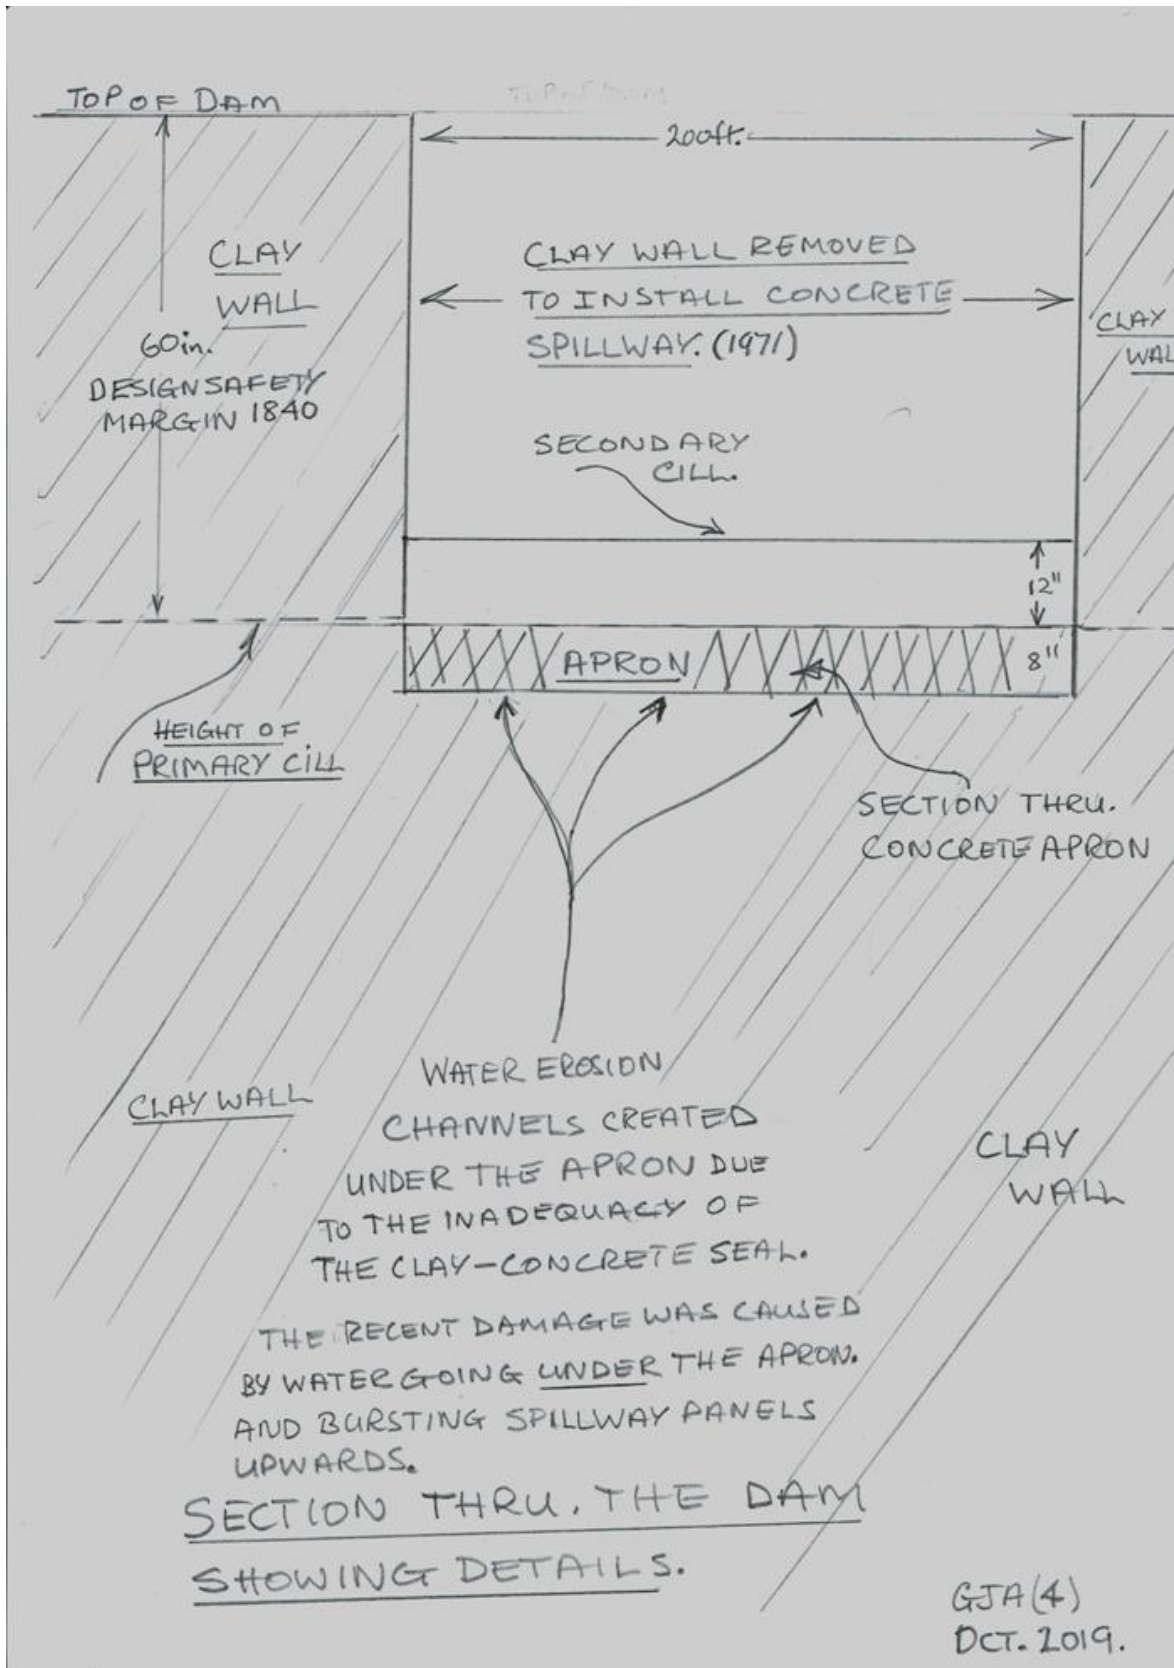 TOP OF DAM
200ft.
CLAY
WALL
60in.
DESIGN SAFETY
MARGIN 1840
CLAY WALL REMOVED
TO INSTALL CONCRETE
SPILLWAY. (1971)
CLAY
WAL
SECONDARY
CILL.
12"
APRON
8"
HEIGHT OF
PRIMARY CILL
SECTION THRU.
CONCRETE APRON
WATER EROSION
CHANNELS CREATED
UNDER THE APRON DUE
TO THE INADEQUACY OF
THE CLAY-CONCRETE SEAL.
CLAY WALL
CLAY
WALL
THE RECENT DAMAGE WAS CAUSED
BY WATER GOING UNDER THE APRON.
AND BURSTING SPILLWAY PANELS
UPWARDS.
SECTION THRU. THE DAM
SHOWING DETAILS.
GJA(4)
OCT. 2019.